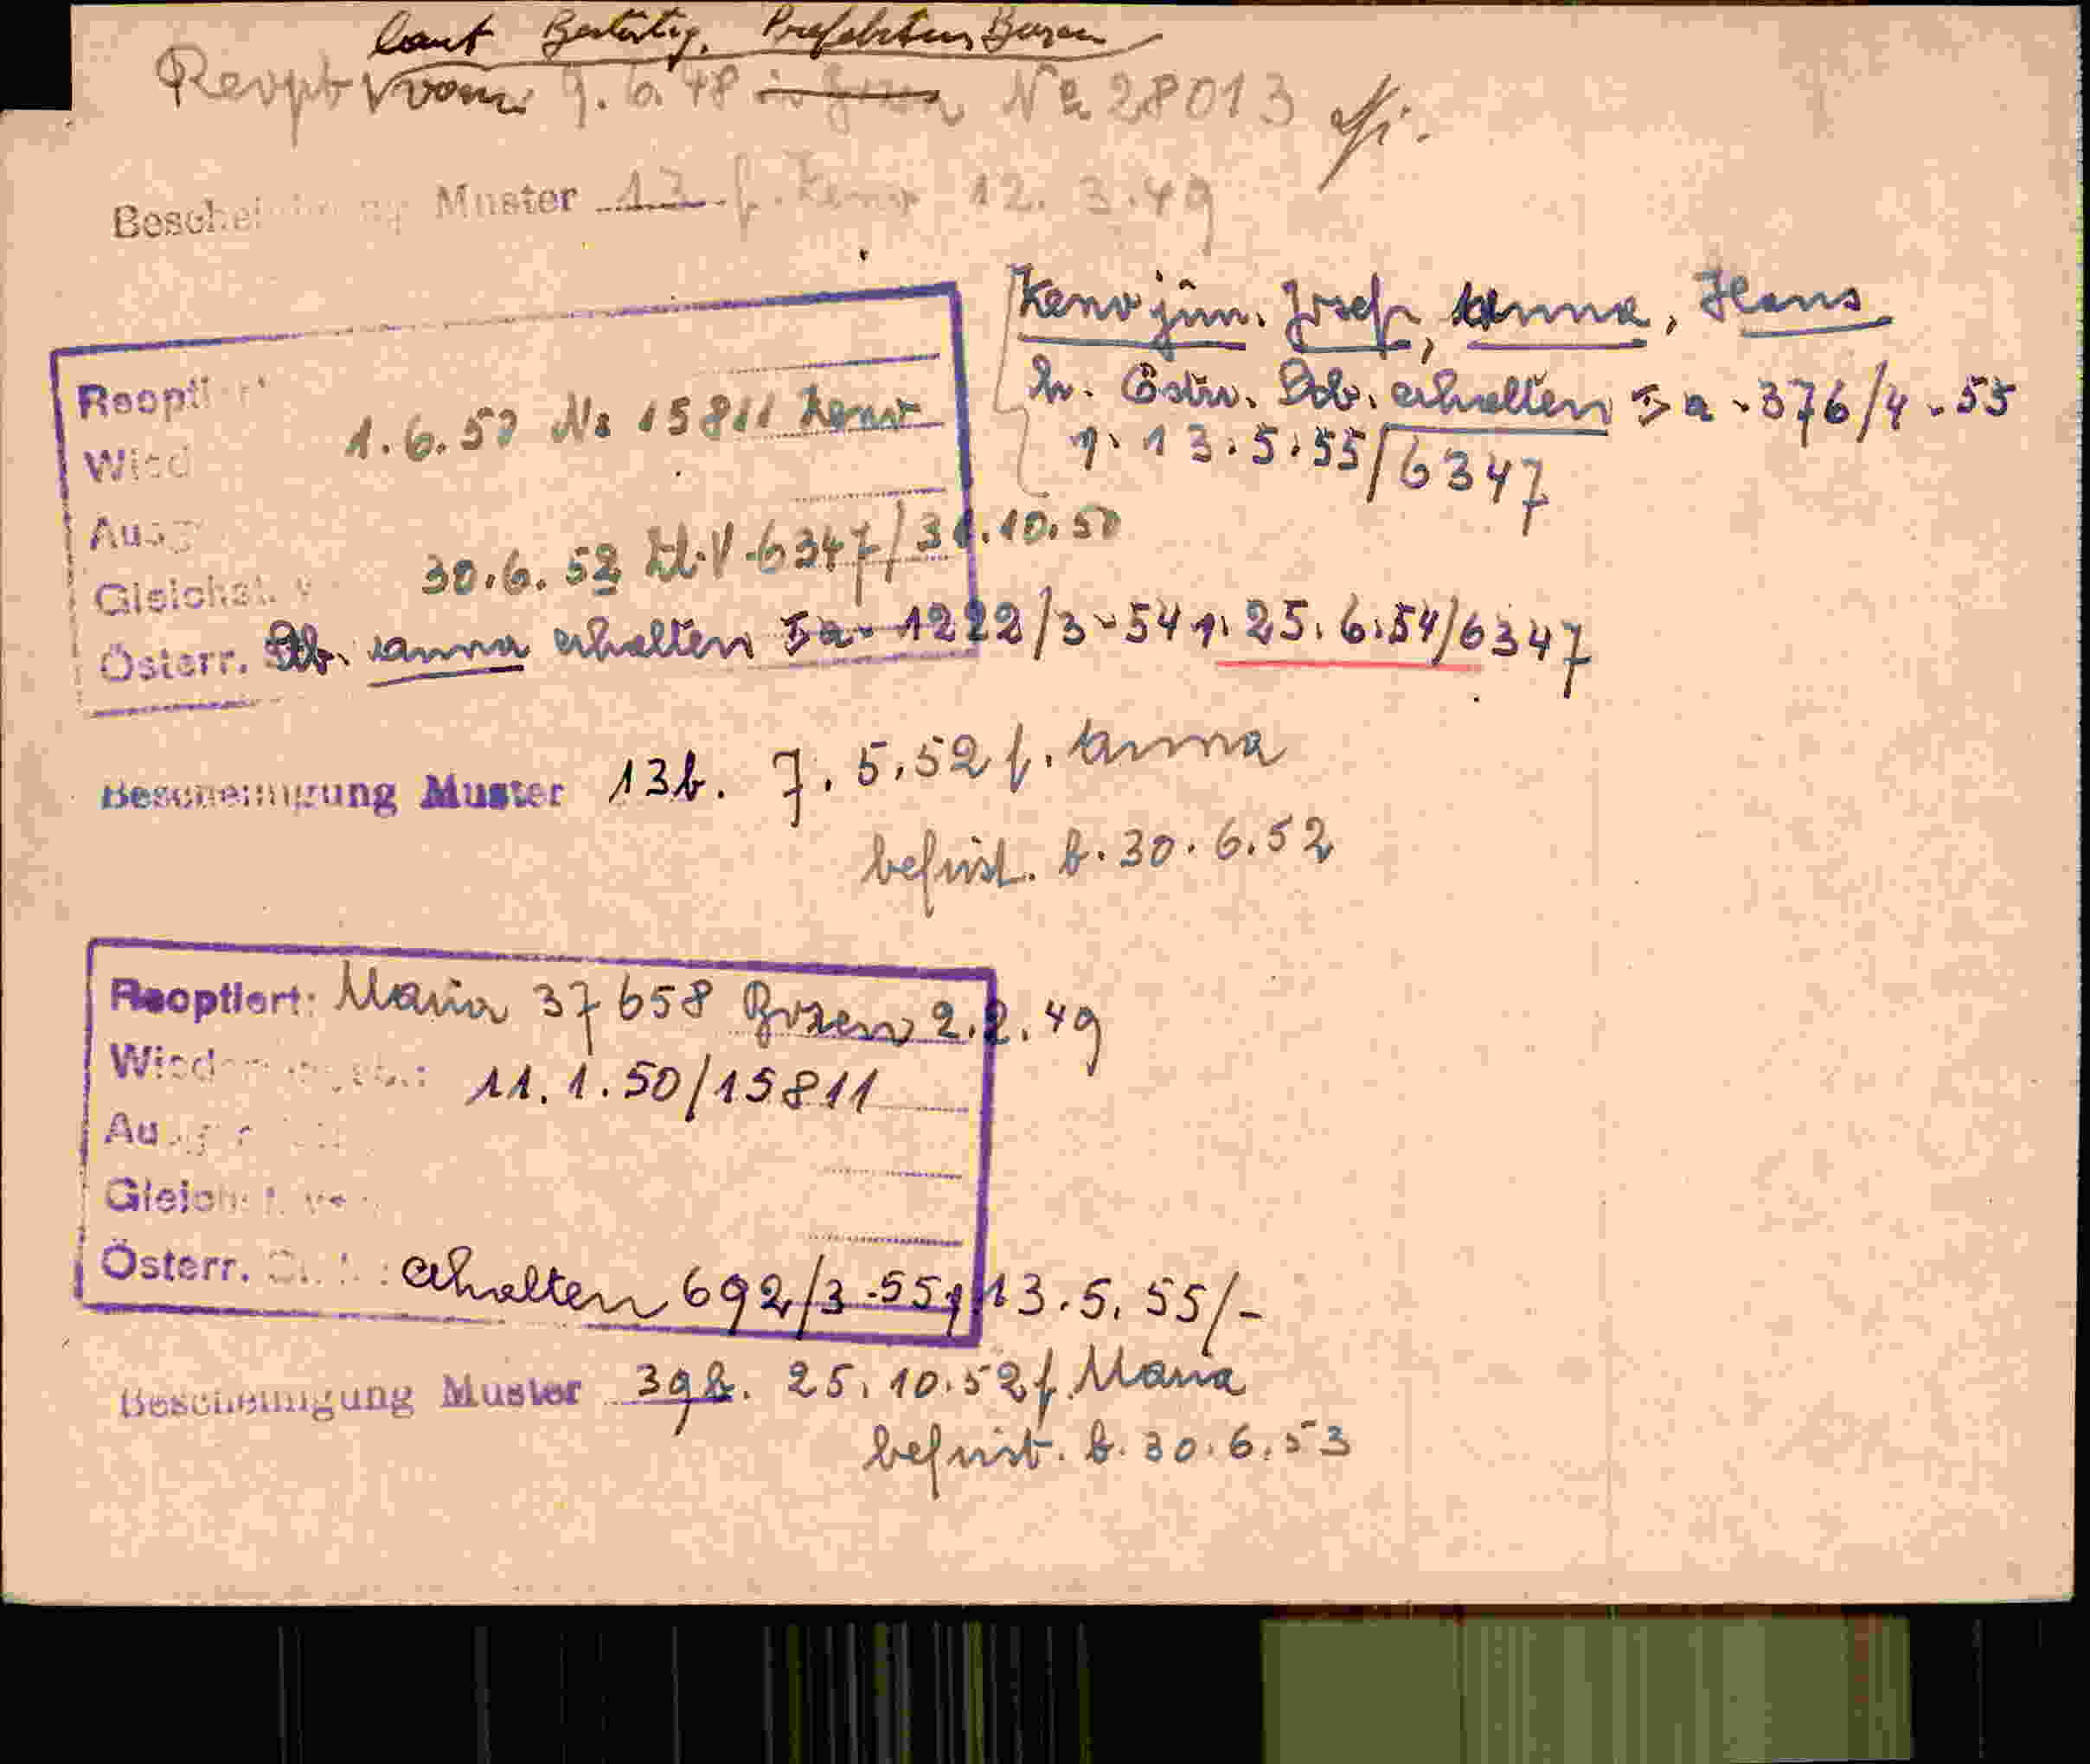 laut Bestätig. Präfektur Bozen
Reopt vom 9.6.48 Nr 28013
Bescheinigung Muster 13 f. Zeno 12.3.49
Zeno jun. Josef, Anna, Hans
erhalten Ia-376/4-55
13.5.55/6347
Reoptiert
1.6.50 Nr 15811 Zeno
Wied
Ausg
30.6.52 Zl.V-6347/31.10.50
Gleichst.
Österr. Stb. Anna erhalten Ia-1222/3-54 v. 25.6.54/6347
Bescheinigung Muster 13b. 7.5.52 f. Anna
befrist. b. 30.6.52
Reoptiert: Maria 37658 Bozen 2.2.49
Wied 11.1.50/15811
Au
Gleich
Österr. erhalten 692/3-55 v 13.5.55/-
Bescheinigung Muster 39b. 25.10.52 f. Maria
befrist. b. 30.6.53